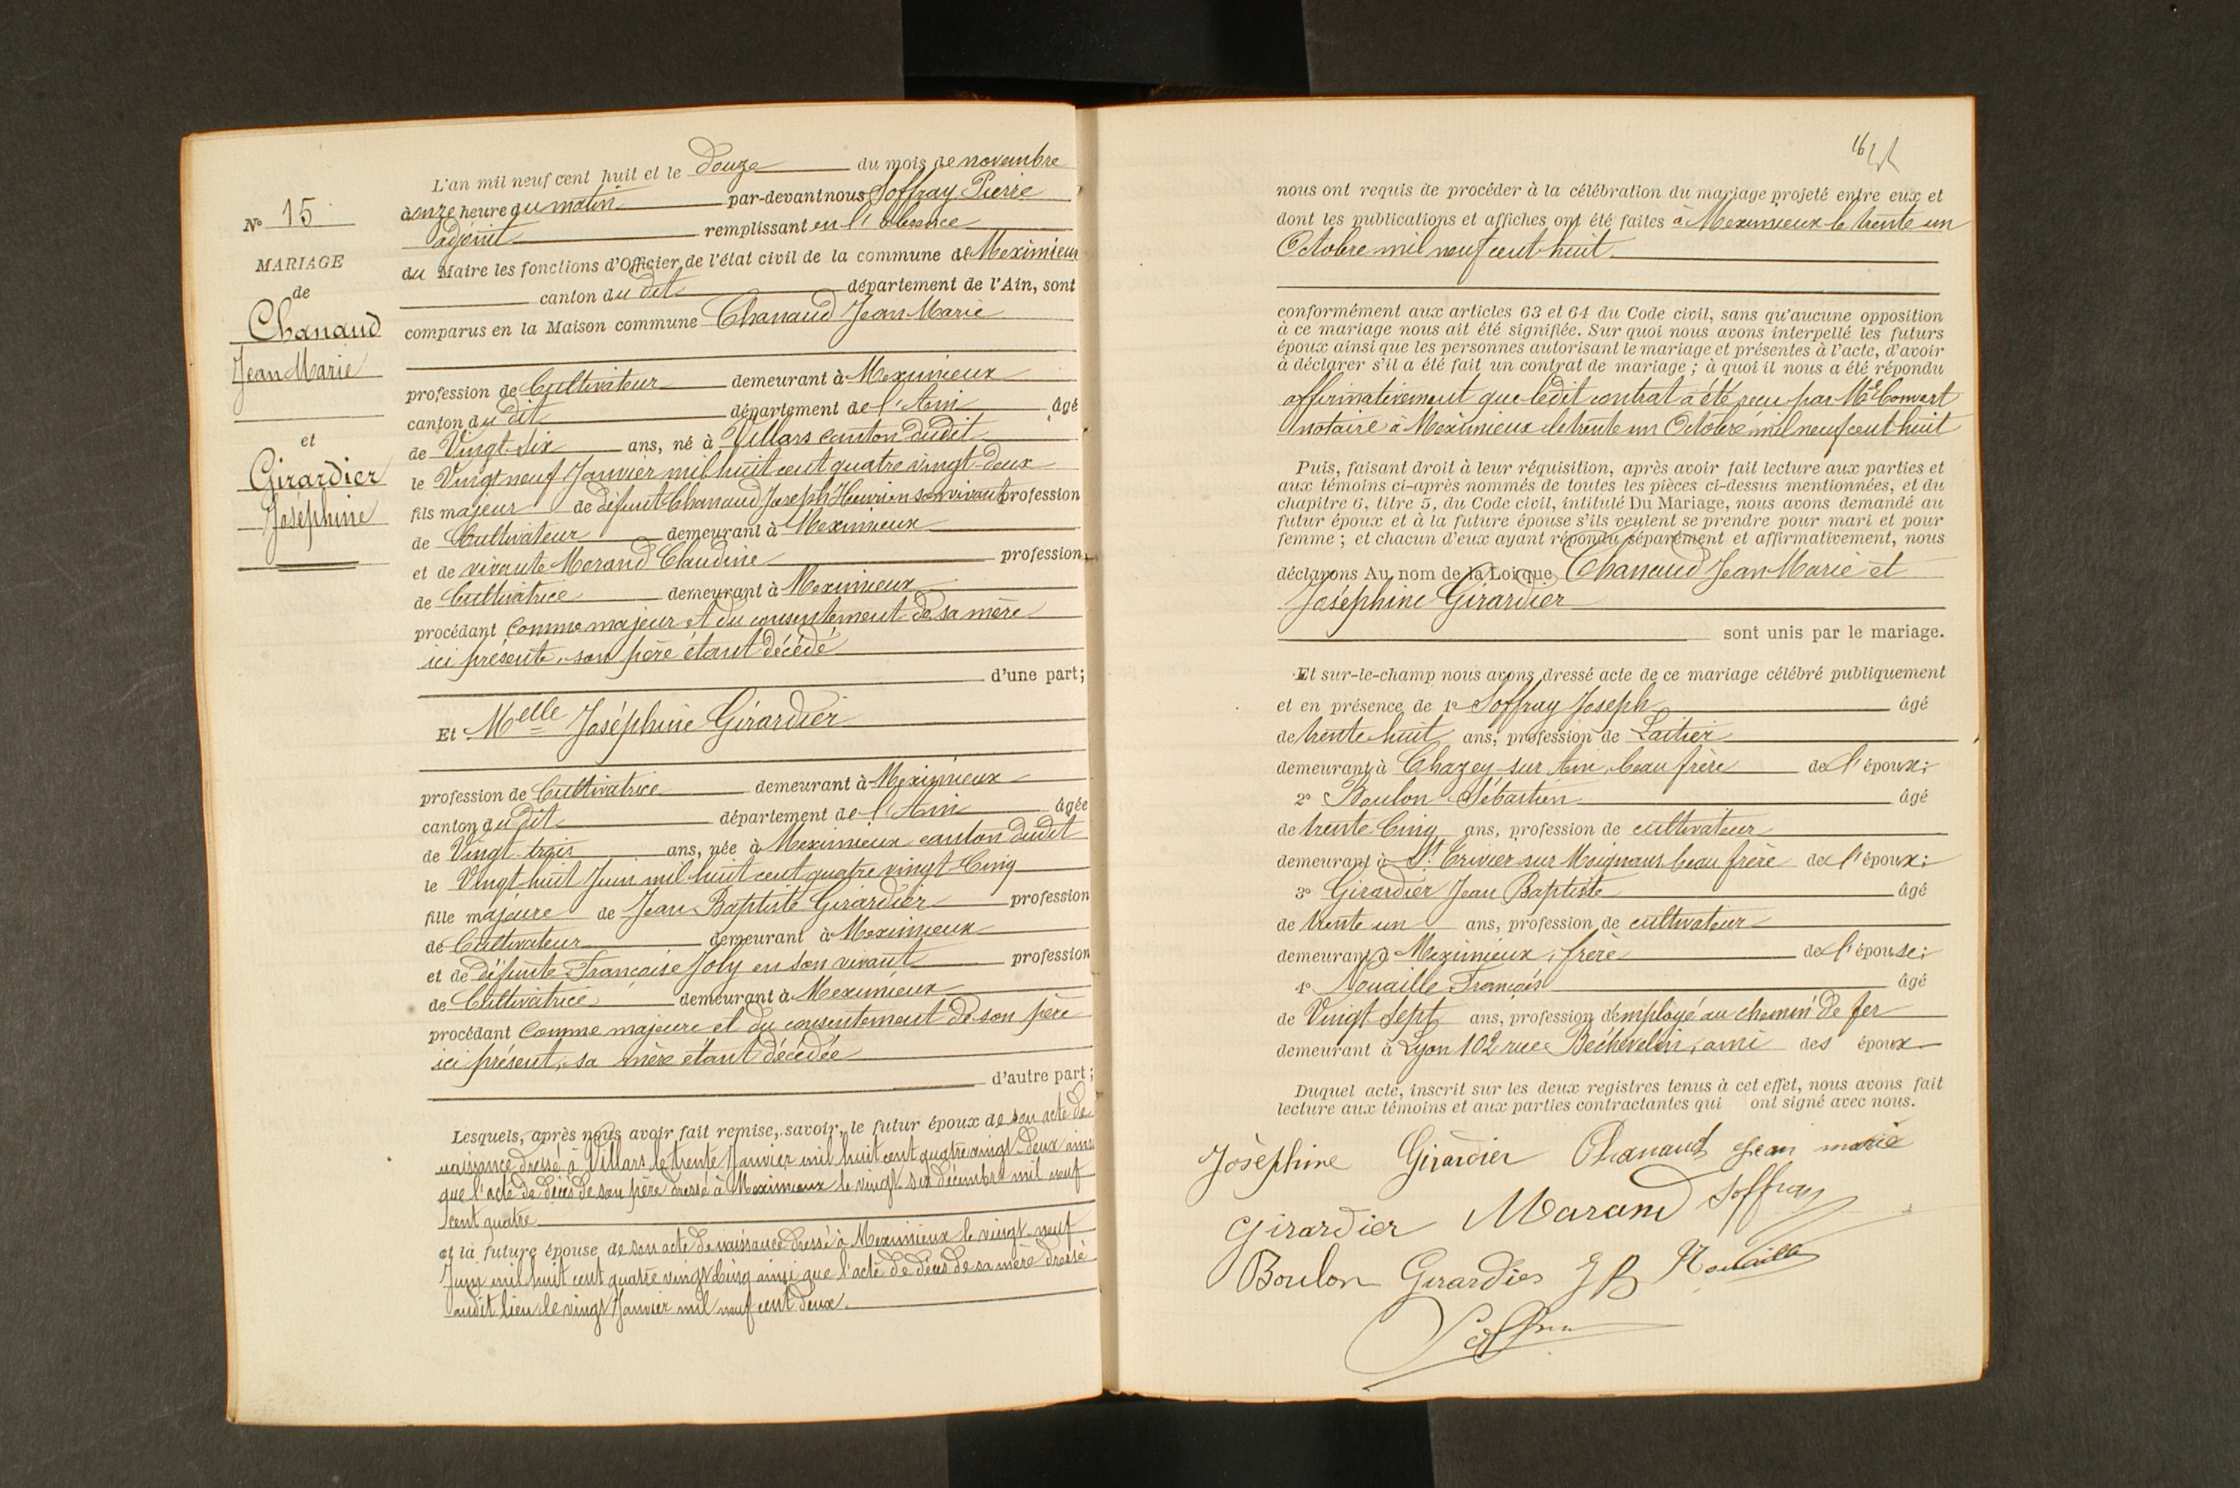 N° 15
MARIAGE
de
Chanaud
Jean Marie
et
Girardier
Joséphine
L'an mil neuf cent huit et le douze du mois de novembre
à onze heure du matin par-devant nous Soffray Pierre
adjoint remplissant en l'absence
du Maire les fonctions d'Officier de l'état civil de la commune de Meximieux
canton du dit département de l'Ain, sont
comparus en la Maison commune Chanaud Jean Marie
profession de Cultivateur demeurant à Meximieux
canton du dit département de l'Ain âgé
de Vingt-six ans, né à Villars canton dudit
le Vingt neuf Janvier mil huit cent quatre vingt-deux
fils majeur de défunt Chanaud Joseph Henri en son vivant profession
de Cultivateur demeurant à Meximieux
et de vivante Morand Claudine profession
de Cultivatrice demeurant à Meximieux
procédant comme majeur et du consentement de sa mère
ici présente, son père étant décédé
d'une part;
Et Melle Joséphine Girardier
profession de Cultivatrice demeurant à Meximieux
canton du dit département de l'Ain âgée
de Vingt-trois ans, née à Meximieux canton dudit
le Vingt-huit Juin mil huit cent quatre vingt-Cinq
fille majeure de Jean-Baptiste Girardier profession
de Cultivateur demeurant à Meximieux
et de défunte Françoise Joly en son vivant profession
de Cultivatrice demeurant à Meximieux
procédant comme majeure et du consentement de son père
ici présent, sa mère étant décédée
d'autre part;
Lesquels, après nous avoir fait remise, savoir, le futur époux de son acte de
naissance dressé à Villars le trente Janvier mil huit cent quatre vingt-deux ainsi
que l'acte de décès de son père dressé à Meximieux le vingt-six décembre mil neuf
cent quatre
et la future épouse de son acte de naissance dressé à Meximieux le vingt-neuf
Juin mil huit cent quatre vingt Cinq ainsi que l'acte de décès de sa mère dressé
audit lieu le vingt Janvier mil neuf cent deux.
16
nous ont requis de procéder à la célébration du mariage projeté entre eux et
dont les publications et affiches ont été faites à Meximieux le trente un
Octobre mil neuf cent huit.
conformément aux articles 63 et 64 du Code civil, sans qu'aucune opposition
à ce mariage nous ait été signifiée. Sur quoi nous avons interpellé les futurs
époux ainsi que les personnes autorisant le mariage et présentes à l'acte, d'avoir
à déclarer s'il a été fait un contrat de mariage ; à quoi il nous a été répondu
affirmativement que ledit contrat a été reçu par Me Convert
notaire à Meximieux le trente un Octobre mil neuf cent huit
Puis, faisant droit à leur réquisition, après avoir fait lecture aux parties et
aux témoins ci-après nommés de toutes les pièces ci-dessus mentionnées, et du
chapitre 6, titre 5, du Code civil, intitulé Du Mariage, nous avons demandé au
futur époux et à la future épouse s'ils veulent se prendre pour mari et pour
femme ; et chacun d'eux ayant répondu séparément et affirmativement, nous
déclarons Au nom de la Loi que Chanaud Jean Marie et
Joséphine Girardier
sont unis par le mariage.
Et sur-le-champ nous avons dressé acte de ce mariage célébré publiquement
et en présence de 1° Soffray Joseph âgé
de trente huit ans, profession de Laitier
demeurant à Chazey-sur Ain, beau frère de l'époux;
2° Boulon Sébastien âgé
de trente-Cinq ans, profession de cultivateur
demeurant à St Trivier sur Moignans beau frère de l'époux;
3° Girardier Jean Baptiste âgé
de trente un ans, profession de cultivateur
demeurant à Meximieux, frère de l'épouse;
4° Nouaille François âgé
de Vingt Sept ans, profession d'employé au chemin de fer
demeurant à Lyon 102 rue Béchevelin, ami des époux
Duquel acte, inscrit sur les deux registres tenus à cet effet, nous avons fait
lecture aux témoins et aux parties contractantes qui ont signé avec nous.
Joséphine Girardier Chanaud Jean marie
Girardier Marand Soffray
Boulon Girardier J B Nouaille
Soffray